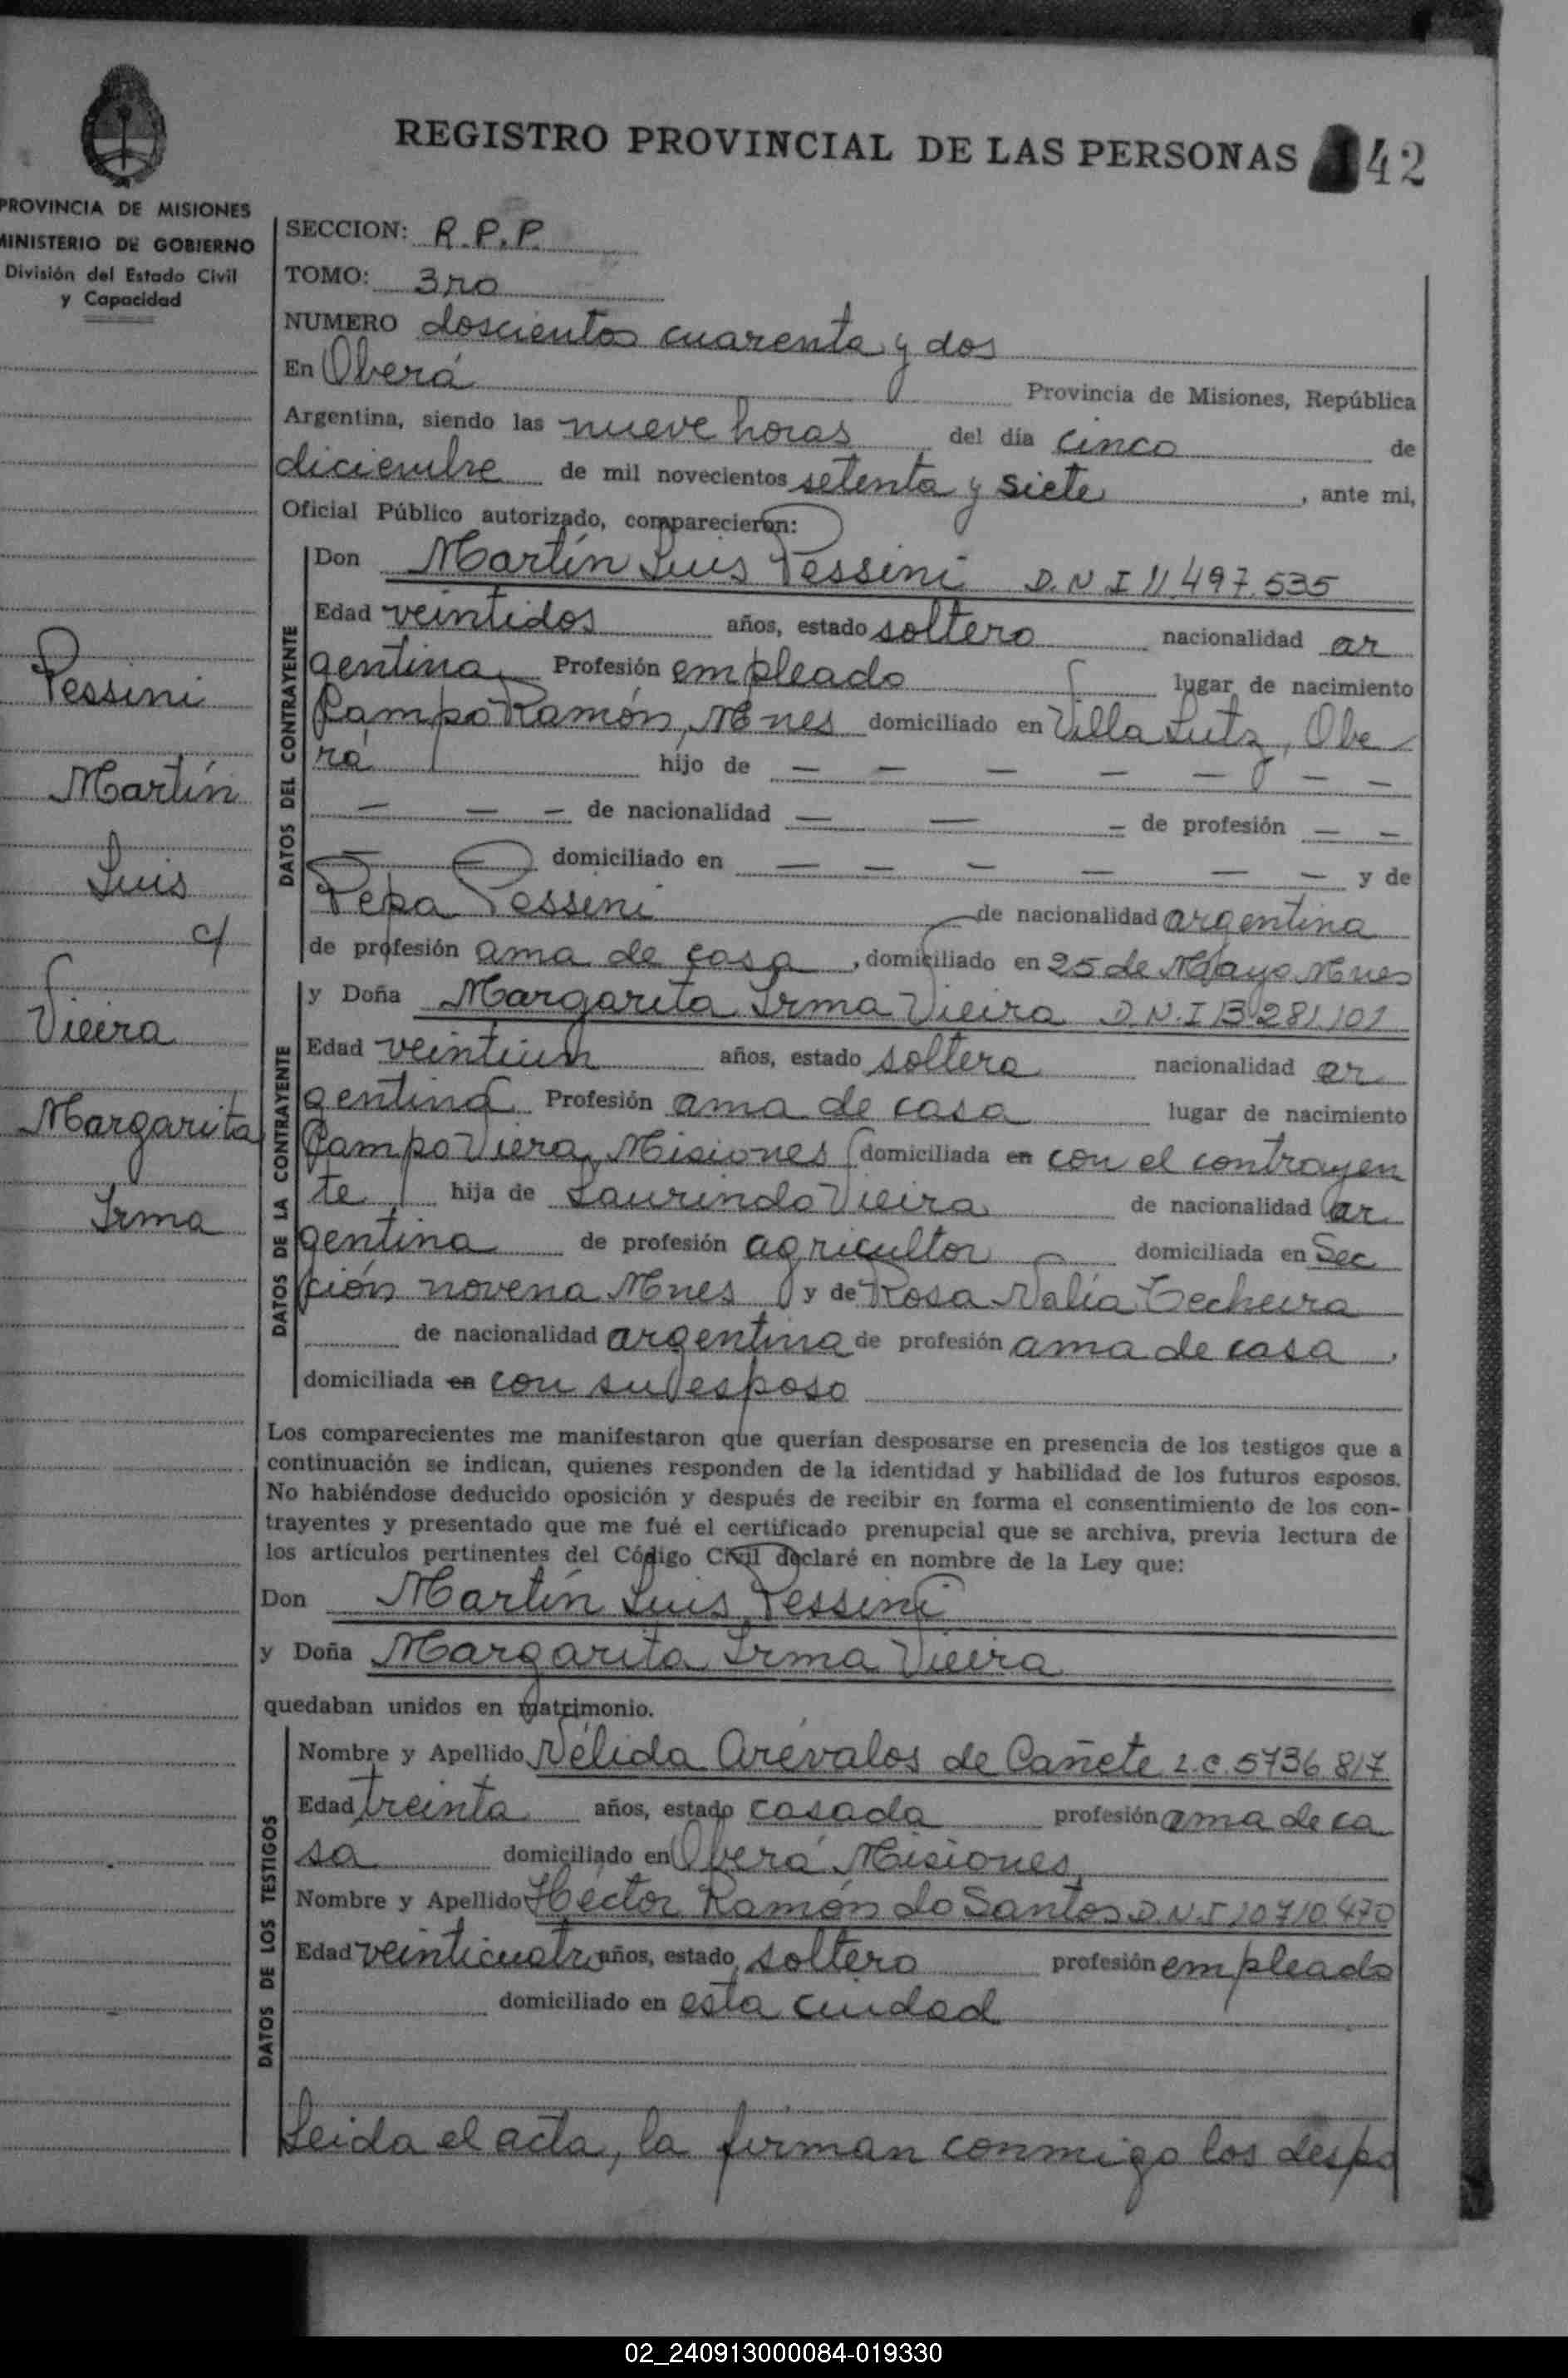 REGISTRO PROVINCIAL DE LAS PERSONAS 42
PROVINCIA DE MISIONES
MINISTERIO DE GOBIERNO
División del Estado Civil
y Capacidad
SECCION: R.P.P.
TOMO: 3ro
NUMERO doscientos cuarenta y dos
En Oberá Provincia de Misiones, República
Argentina, siendo las nueve horas del día cinco de
diciembre de mil novecientos setenta y siete, ante mi,
Oficial Público autorizado, comparecieron:
DATOS DEL CONTRAYENTE
Don Martín Luis Pessini D.N.I 11.497.535
Edad veintidos años, estado soltero nacionalidad ar
gentina Profesión empleado lugar de nacimiento
Campo Ramón, Mnes domiciliado en Villa Lutz, Obe
rá hijo de — — — — — — —
— — — de nacionalidad — — — de profesión — —
— — domiciliado en — — — — — — y de
Pepa Pessini de nacionalidad argentina
de profesión ama de casa, domiciliado en 25 de Mayo Mnes
Pessini
Martín
Luis
c/
Vieira
Margarita
Irma
DATOS DE LA CONTRAYENTE
y Doña Margarita Irma Vieira D.N.I 13.281.101
Edad veintiun años, estado soltera nacionalidad ar
gentina Profesión ama de casa lugar de nacimiento
Campo Viera, Misiones domiciliada en con el contrayen
te hija de Laurindo Vieira de nacionalidad ar
gentina de profesión agricultor domiciliada en Sec
ción novena Mnes y de Rosa Nalia Techeira
de nacionalidad argentina de profesión ama de casa,
domiciliada en con su esposo
Los comparecientes me manifestaron que querían desposarse en presencia de los testigos que a
continuación se indican, quienes responden de la identidad y habilidad de los futuros esposos.
No habiéndose deducido oposición y después de recibir en forma el consentimiento de los con-
trayentes y presentado que me fué el certificado prenupcial que se archiva, previa lectura de
los artículos pertinentes del Código Civil declaré en nombre de la Ley que:
Don Martín Luis Pessini
y Doña Margarita Irma Vieira
quedaban unidos en matrimonio.
DATOS DE LOS TESTIGOS
Nombre y Apellido Nélida Arévalos de Cañete L.C. 5736 817
Edad treinta años, estado casada profesión ama de ca
sa domiciliado en Oberá Misiones
Nombre y Apellido Héctor Ramón do Santos D.N.I 10710.470
Edad veinticuatro años, estado soltero profesión empleado
domiciliado en esta ciudad
Leida el acta, la firman conmigo los despo
02_240913000084-019330